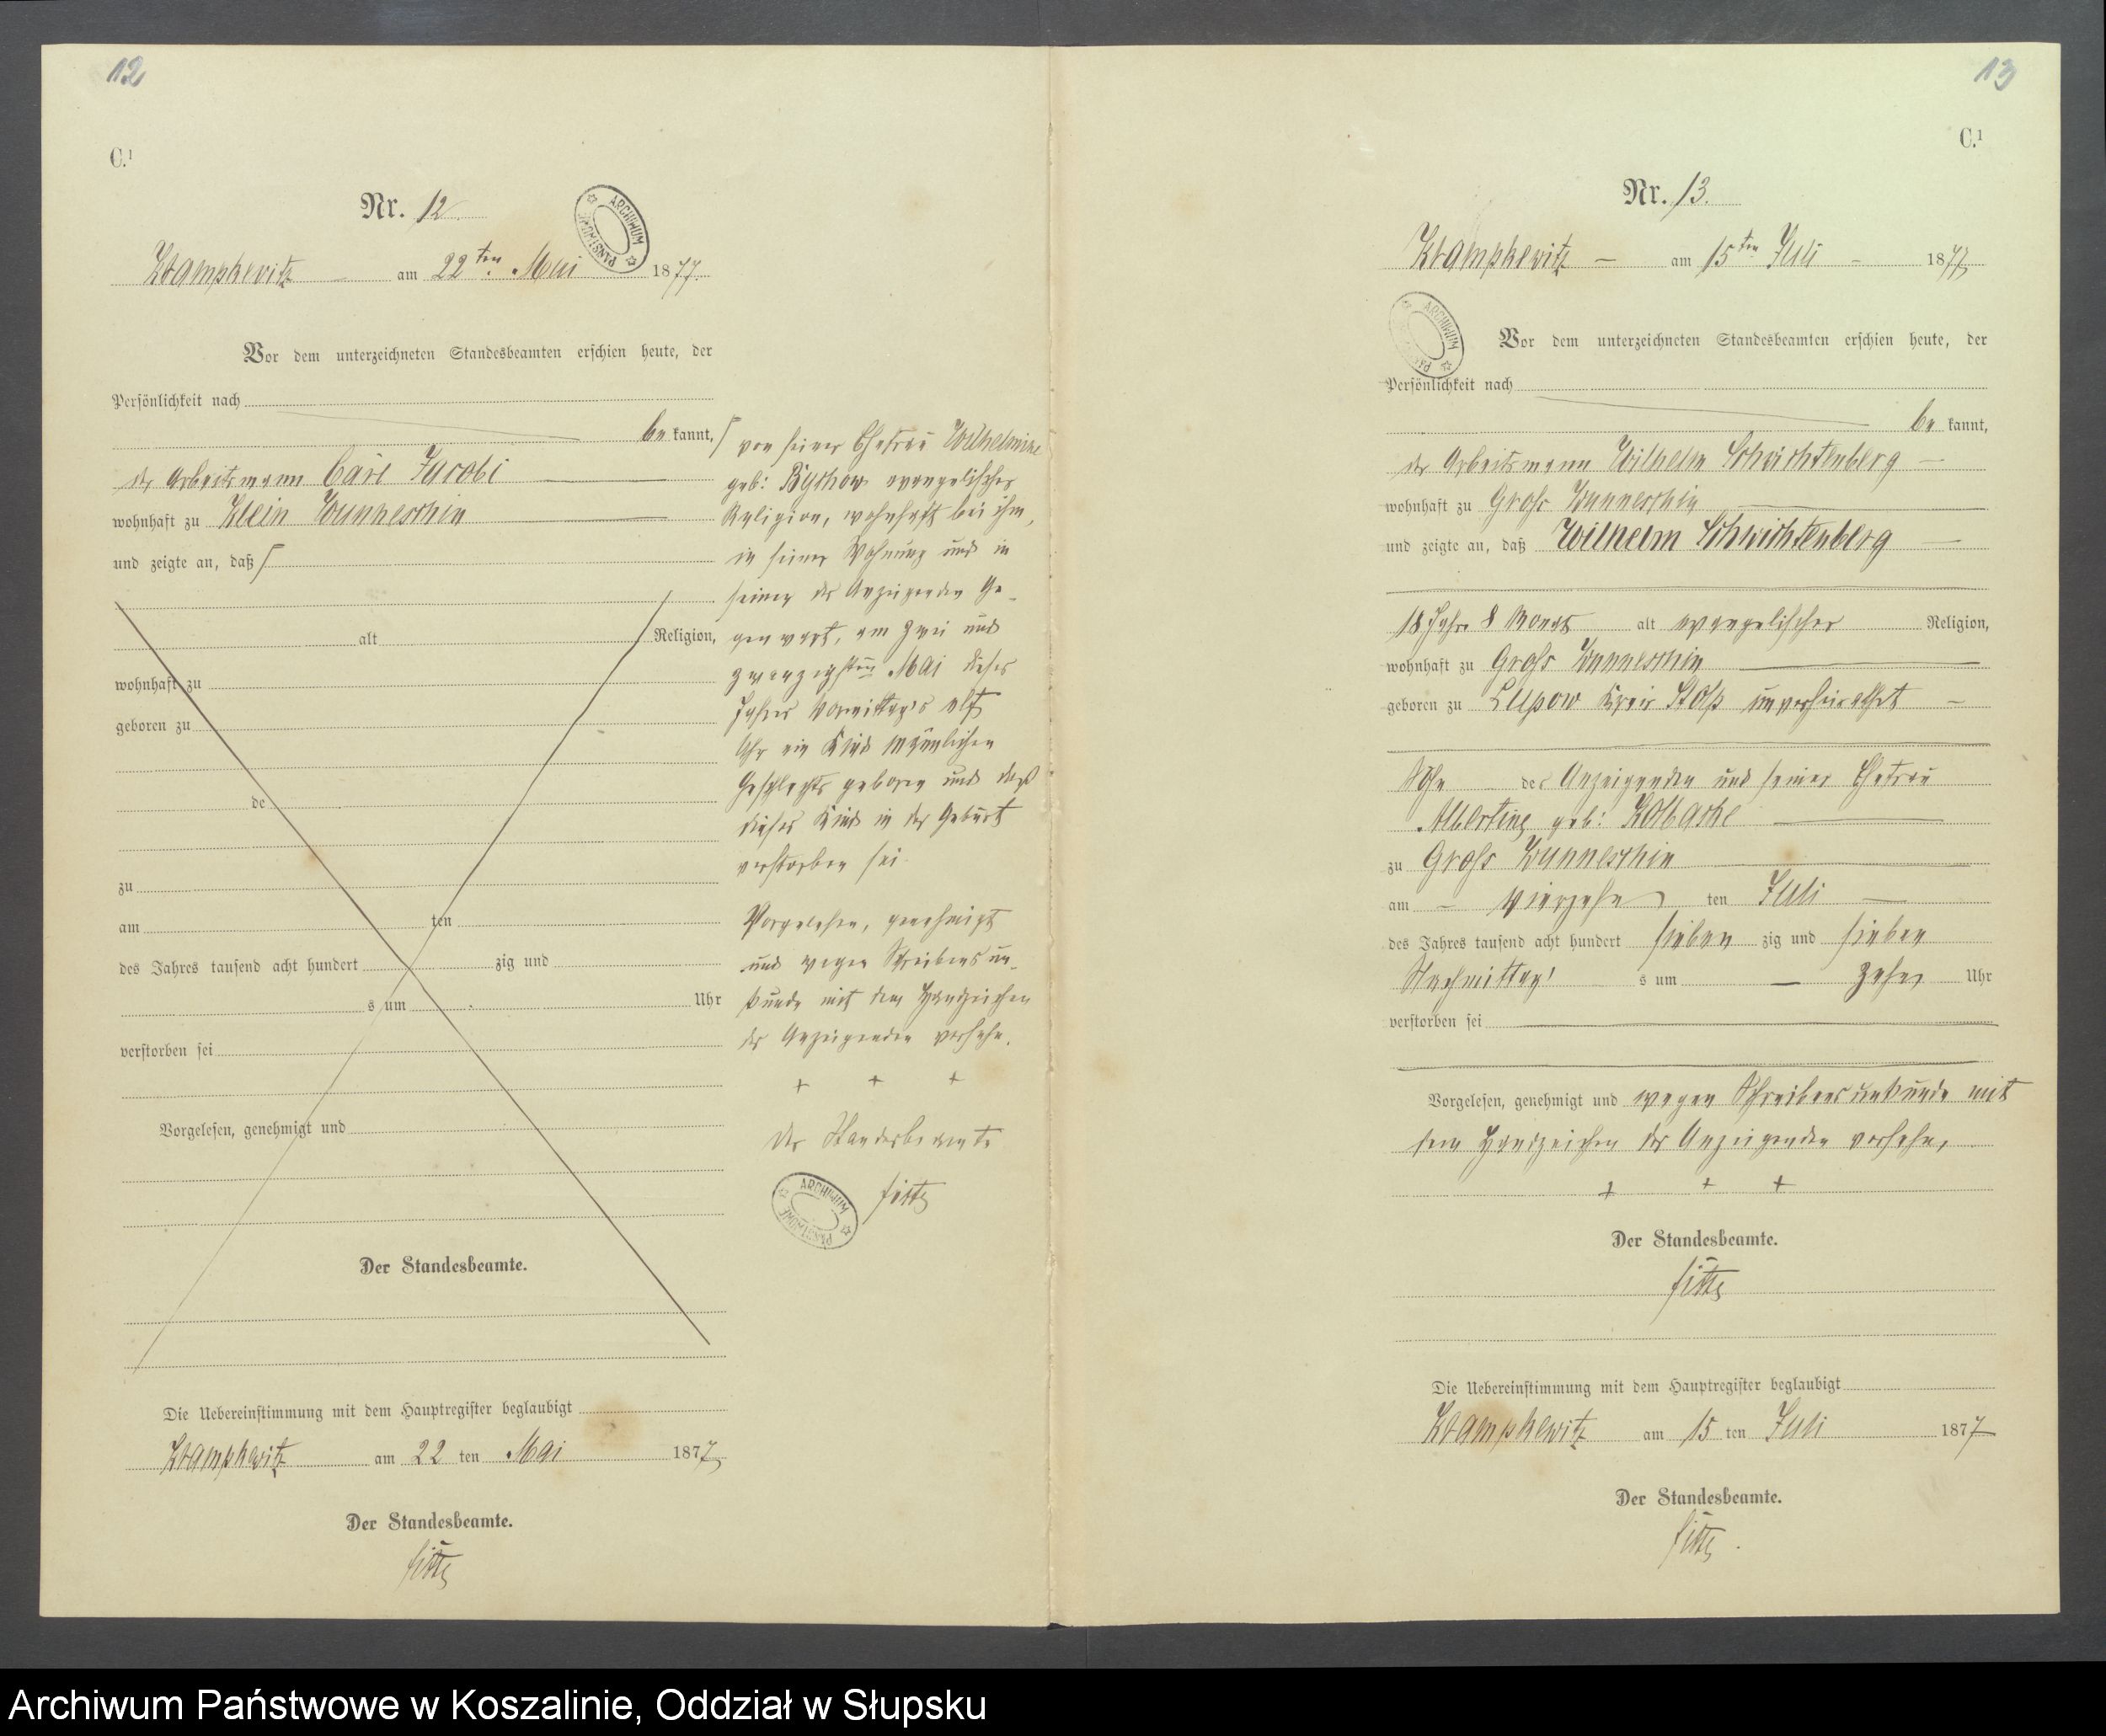 12
C.¹
Nr. 12.
ARCHIWUM PAŃSTWOWE
Krampkewitz am 22 ten Mai 1877.
Vor dem unterzeichneten Standesbeamten erschien heute, der
Persönlichkeit nach
be kannt,
der Arbeitsmann Carl Jacobi
wohnhaft zu Klein Wunneschin
und zeigte an, daß
alt Religion,
wohnhaft zu
geboren zu
de
zu
am ten
des Jahres tausend acht hundert zig und
s um Uhr
verstorben sei
Vorgelesen, genehmigt und
Der Standesbeamte.
Die Uebereinstimmung mit dem Hauptregister beglaubigt
Krampkewitz am 22 ten Mai 1877
Der Standesbeamte.
von seiner Ehefrau Wilhelmine
geb: Bychow evangelischer
Religion, wohnhaft bei ihm,
in seiner Wohnung und in
seiner des Anzeigenden Ge-
genwart, am zwei und
zwanzigsten Mai dieses
Jahres Vormittags elf
Uhr ein Kind männlichen
Geschlechts geboren und daß
dieses Kind in der Geburt
verstorben sei.
Vorgelesen, genehmigt
und wegen Schreibensun-
kunde mit dem Handzeichen
des Anzeigenden versehn.
+ + +
Der Standesbeamte
ARCHIWUM PAŃSTWOWE
13
C.¹
Nr. 13.
Krampkewitz am 15 ten Juli 1877
ARCHIWUM
Vor dem unterzeichneten Standesbeamten erschien heute, der
Persönlichkeit nach
be kannt,
der Arbeitsmann Wilhelm Schwichtenberg
wohnhaft zu Groß Wunneschin
und zeigte an, daß Wilhelm Schwichtenberg
18 Jahr 8 Monat alt evangelischer Religion,
wohnhaft zu Groß Wunneschin
geboren zu Lupow Kreis Stolp unverheirathet
Sohn des Anzeigenden und seiner Ehefrau
Albertine geb: Kolbaske
zu Groß Wunneschin
am vierzehn ten Juli
des Jahres tausend acht hundert sieben zig und sieben
Nachmittag s um zehn Uhr
verstorben sei
Vorgelesen, genehmigt und wegen Schreibensunkunde mit
dem Handzeichen des Anzeigenden versehn,
+ + +
Der Standesbeamte.
Die Uebereinstimmung mit dem Hauptregister beglaubigt
Krampkewitz am 15 ten Juli 1877
Der Standesbeamte.
Archiwum Państwowe w Koszalinie, Oddział w Słupsku